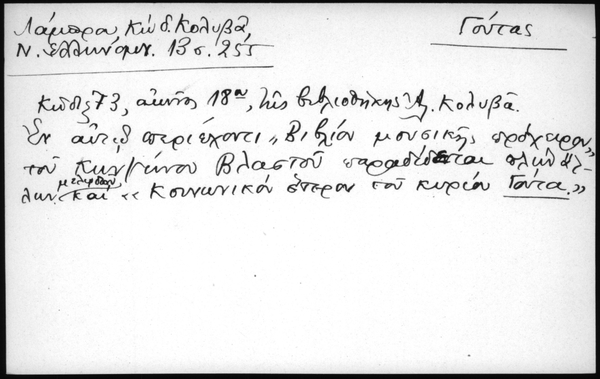 Λάμπρου, Κώδ. Κολυβᾶ,
Ν. Ἑλληνομν. 13 σ. 255
Γούτας
Κώδιξ 73, αἰῶνος 18ου, τῆς βιβλιοθήκης Ἀ. Κολυβᾶ.
Ἐν αὐτῷ περιέχοντι "Βιβλίον μουσικῆς πρόχειρον"
τοῦ Βλαστοῦ παραδίδεται πλὴν ἄλ-
λων μελῳδιῶν καὶ "Κοινωνικὸ ἕτερον τοῦ κυρίου Γούτα."